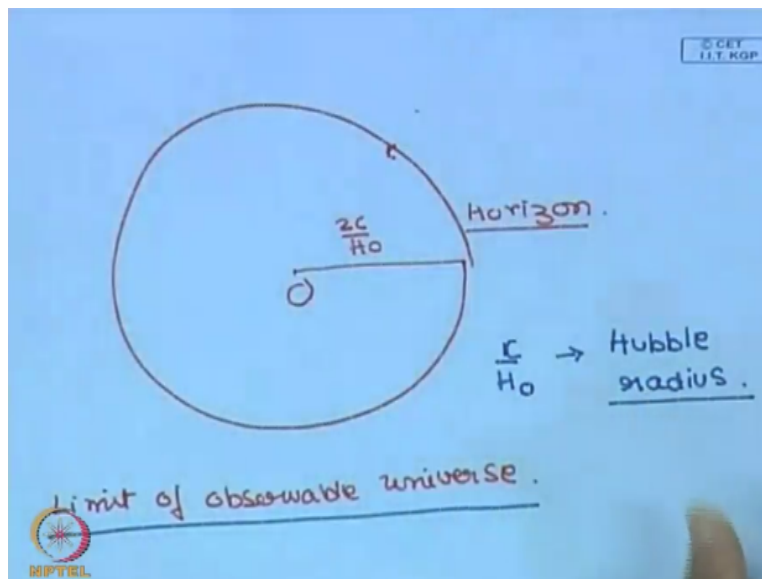 © CET
I.I.T. KGP
2c
H0
Horizon.
O
c
H0
→ Hubble
radius.
Limit of observable universe.
NPTEL